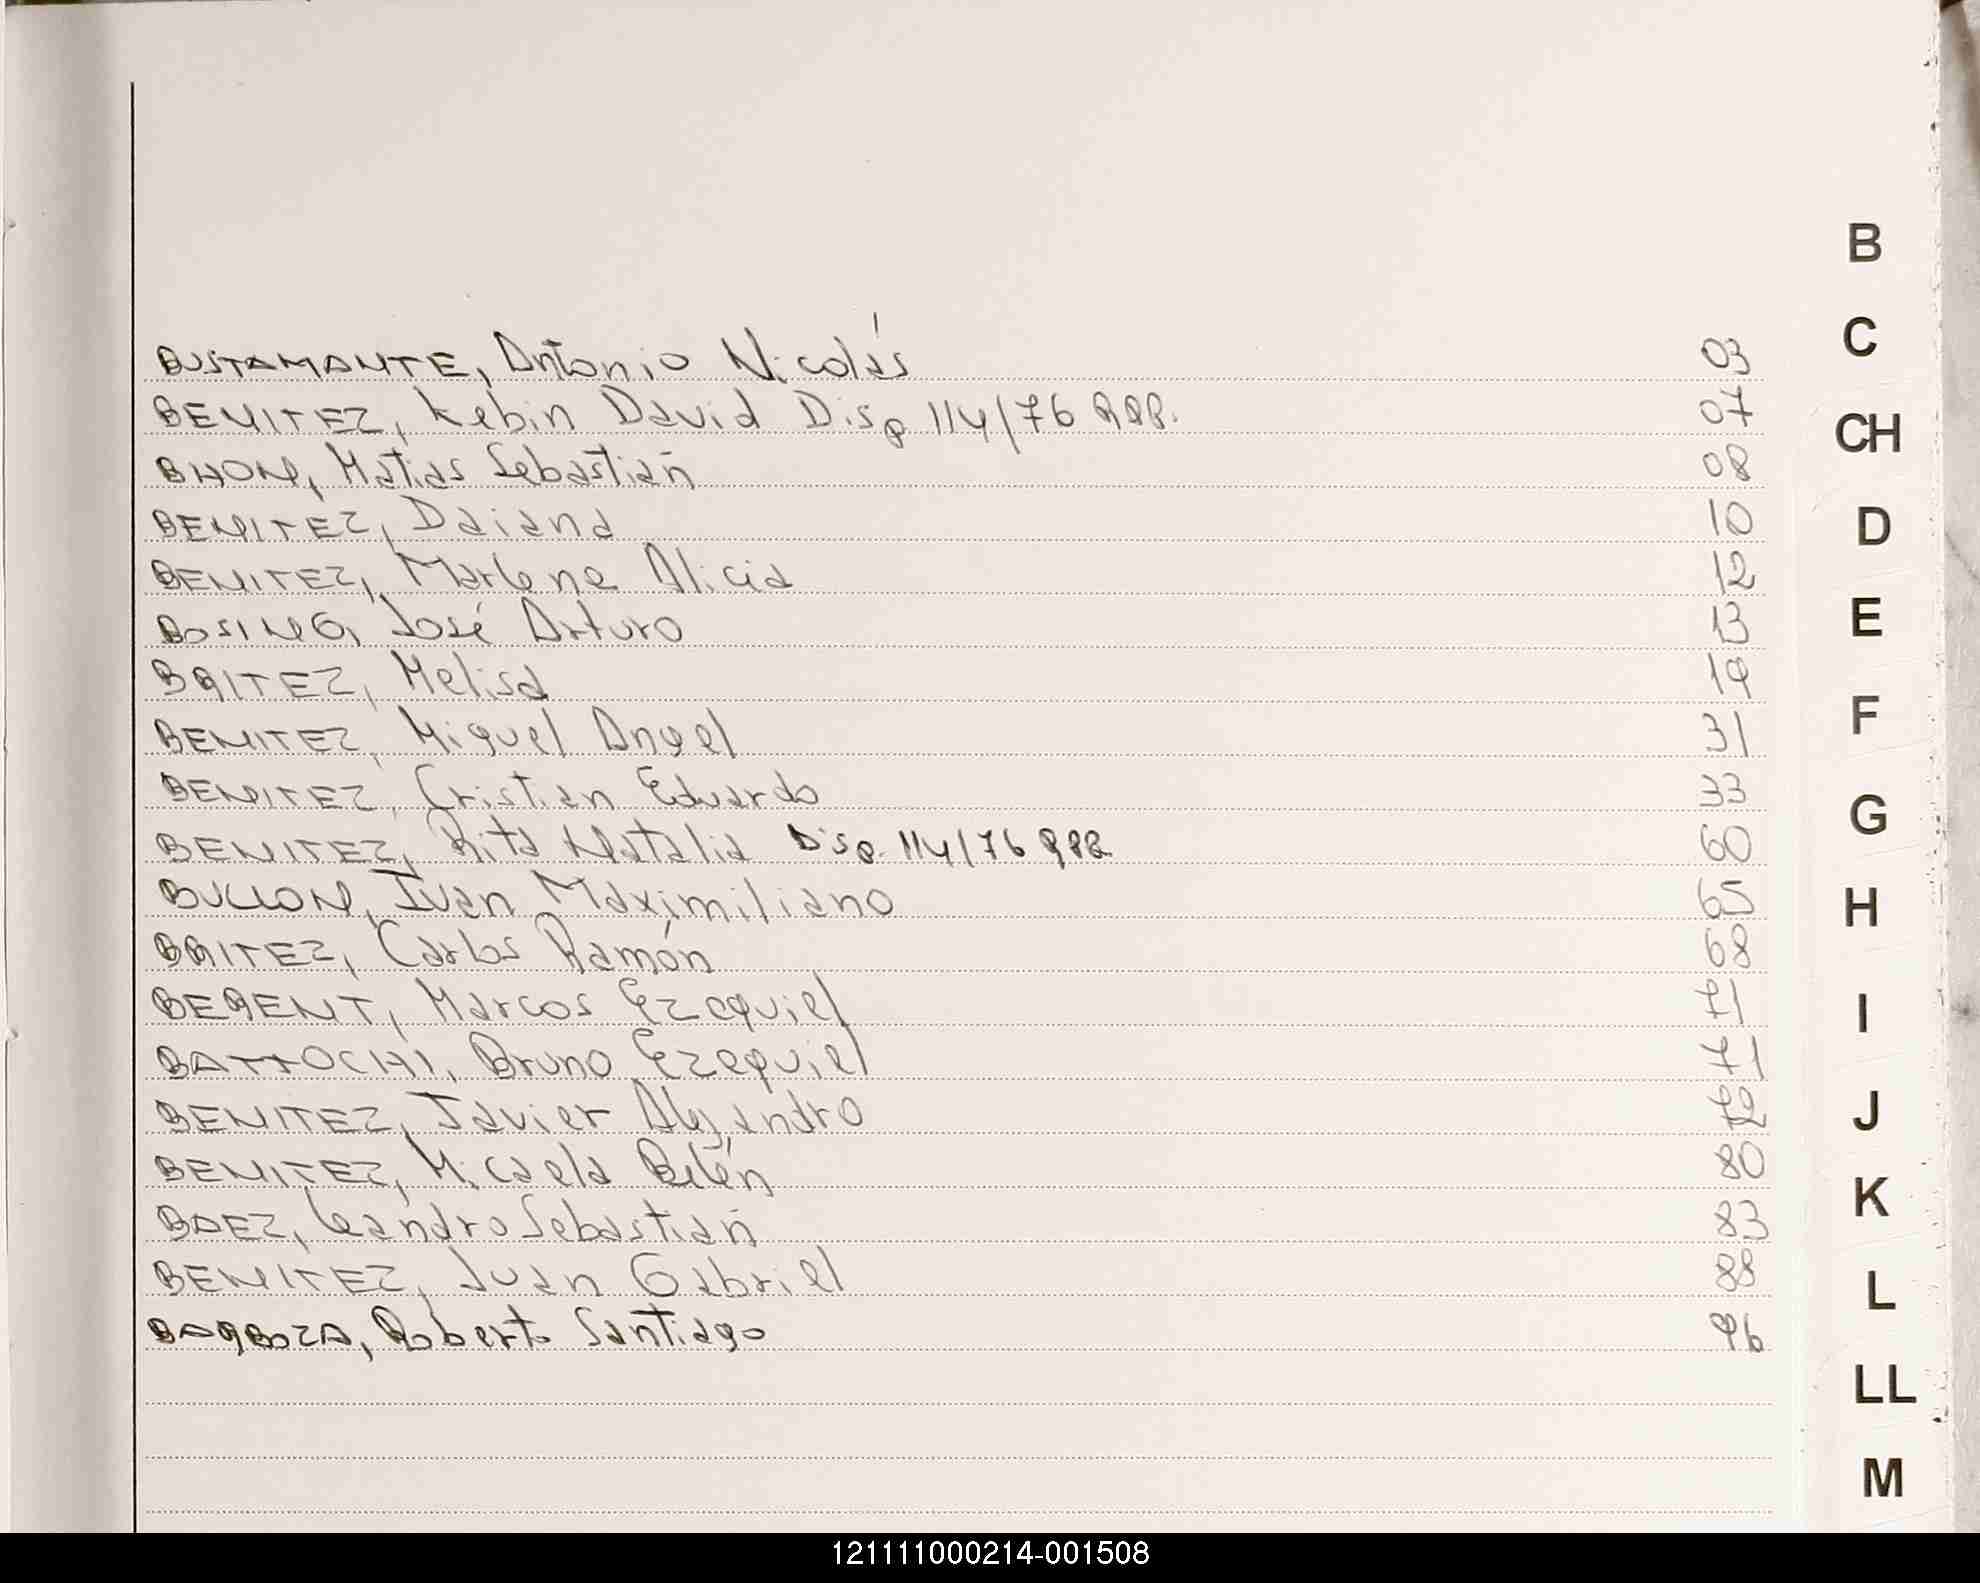 BUSTAMANTE, Antonio Nicolás 03
BENITEZ, Kebin David Disp 114/76 RPP. 07
BHON, Matias Sebastián 08
BENITEZ, Daiana 10
BENITEZ, Marlene Alicia 12
BOSING, José Arturo 13
BRITEZ, Melisa 19
BENITEZ, Miguel Angel 31
BENITEZ, Cristian Eduardo 33
BENITEZ, Rita Natalia Disp. 114/76 RPP 60
BULLON, Ivan Maximiliano 65
BRITEZ, Carlos Ramón 68
BERENT, Marcos Ezequiel 71
BATTOCHI, Bruno Ezequiel 71
BENITEZ, Javier Alejandro 72
BENITEZ, Micaela Belén 80
BAEZ, Leandro Sebastián 83
BENITEZ, Juan Gabriel 88
BARBOZA, Roberto Santiago 96
B
C
CH
D
E
F
G
H
I
J
K
L
LL
M
121111000214-001508